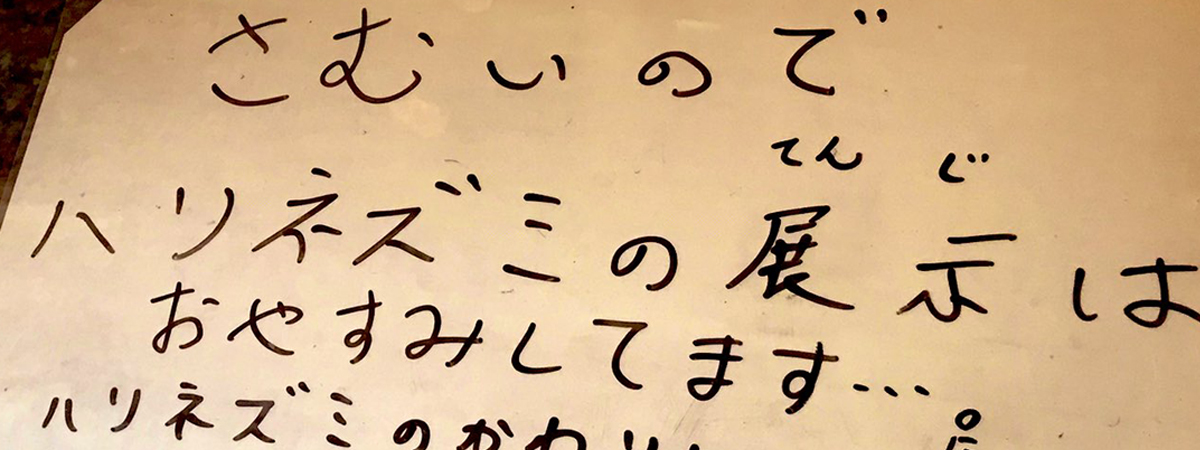 さむいので
てんじ
ハリネズミの展示は
おやすみしてます…
ハリネズミのかわり